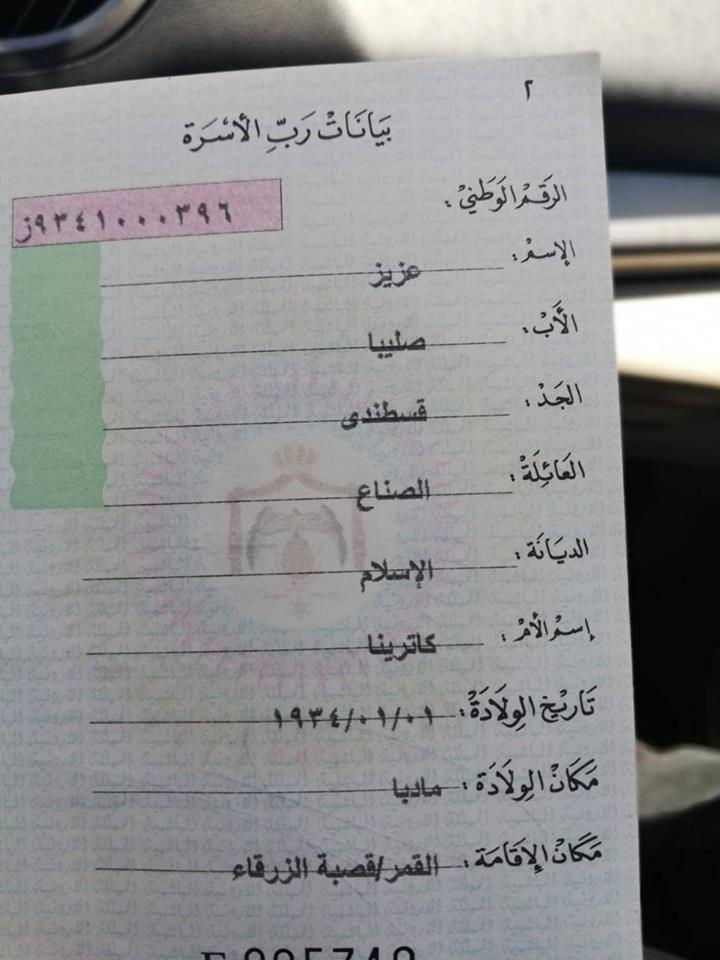 ٢
بَيَانَاتْ رَبِّ الأُسْرَة
الرقم الوطني: ٩٣٤١٠٠٠٣٩٦ز
الإسم: عزيز
الأب: صليبا
الجد: قسطندى
العائلة: الصناع
الديانة: الإسلام
إسم الأم: كاترينا
تاريخ الولادة: ١٩٣٤/٠١/٠١
مكان الولادة: مادبا
مكان الإقامة: القمر/قصبة الزرقاء